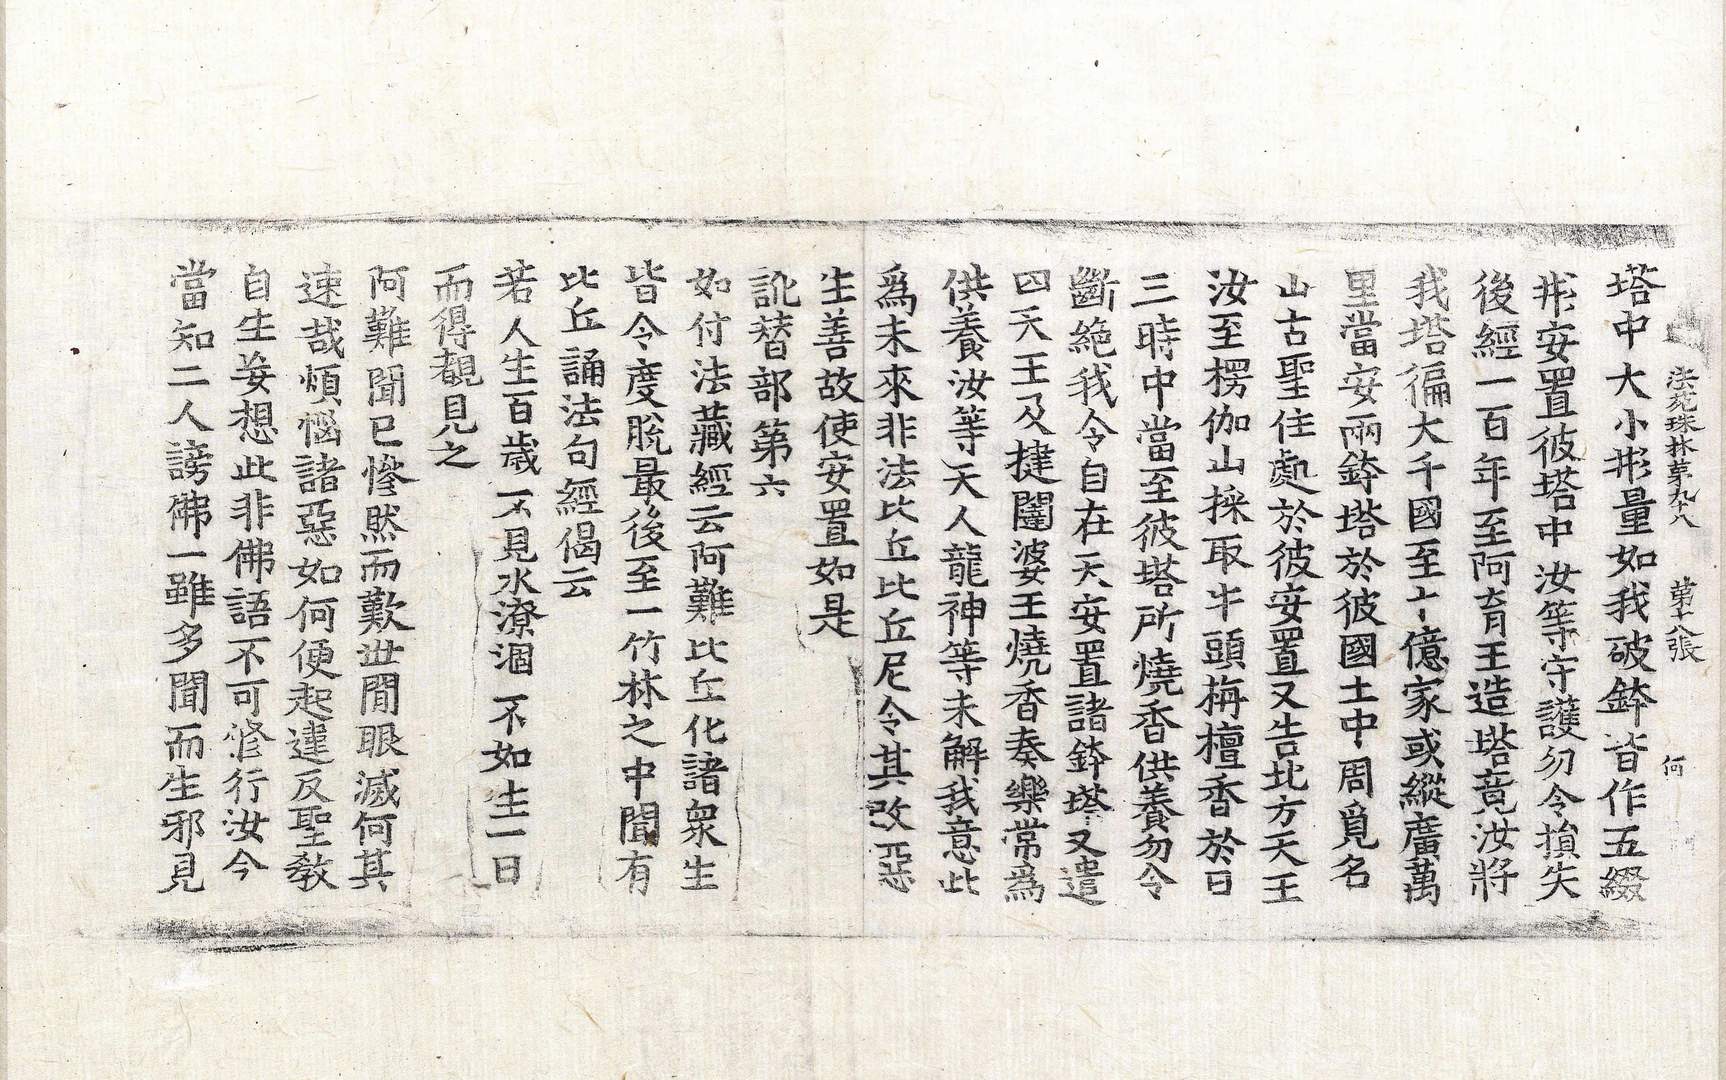 法苑珠林第九十八　第十八張　何
塔中大小形量如我破鉢皆作五綴
形安置彼塔中汝等守護勿令損失
後經一百年至阿育王造塔竟汝將
我塔徧大千國至十億家或縱廣萬
里當安兩鉢塔於彼國土中周覓名
山古聖住處於彼安置又告北方天王
汝至楞伽山採取牛頭栴檀香於日
三時中當至彼塔所燒香供養勿令
斷絶我令自在天安置諸鉢塔又遣
四天王及揵闥婆王燒香奏樂常爲
供養汝等天人龍神等未解我意此
爲未來非法比丘比丘尼令其改惡
生善故使安置如是
訛替部第六
如付法藏經云阿難比丘化諸衆生
皆令度脫最後至一竹林之中聞有
比丘誦法句經偈云
若人生百歲　不見水潦涸　不如生一日
而得覩見之
阿難聞已慘然而歎世閒眼滅何其
速哉煩惱諸惡如何便起違反聖教
自生妄想此非佛語不可修行汝今
當知二人謗佛一雖多聞而生邪見